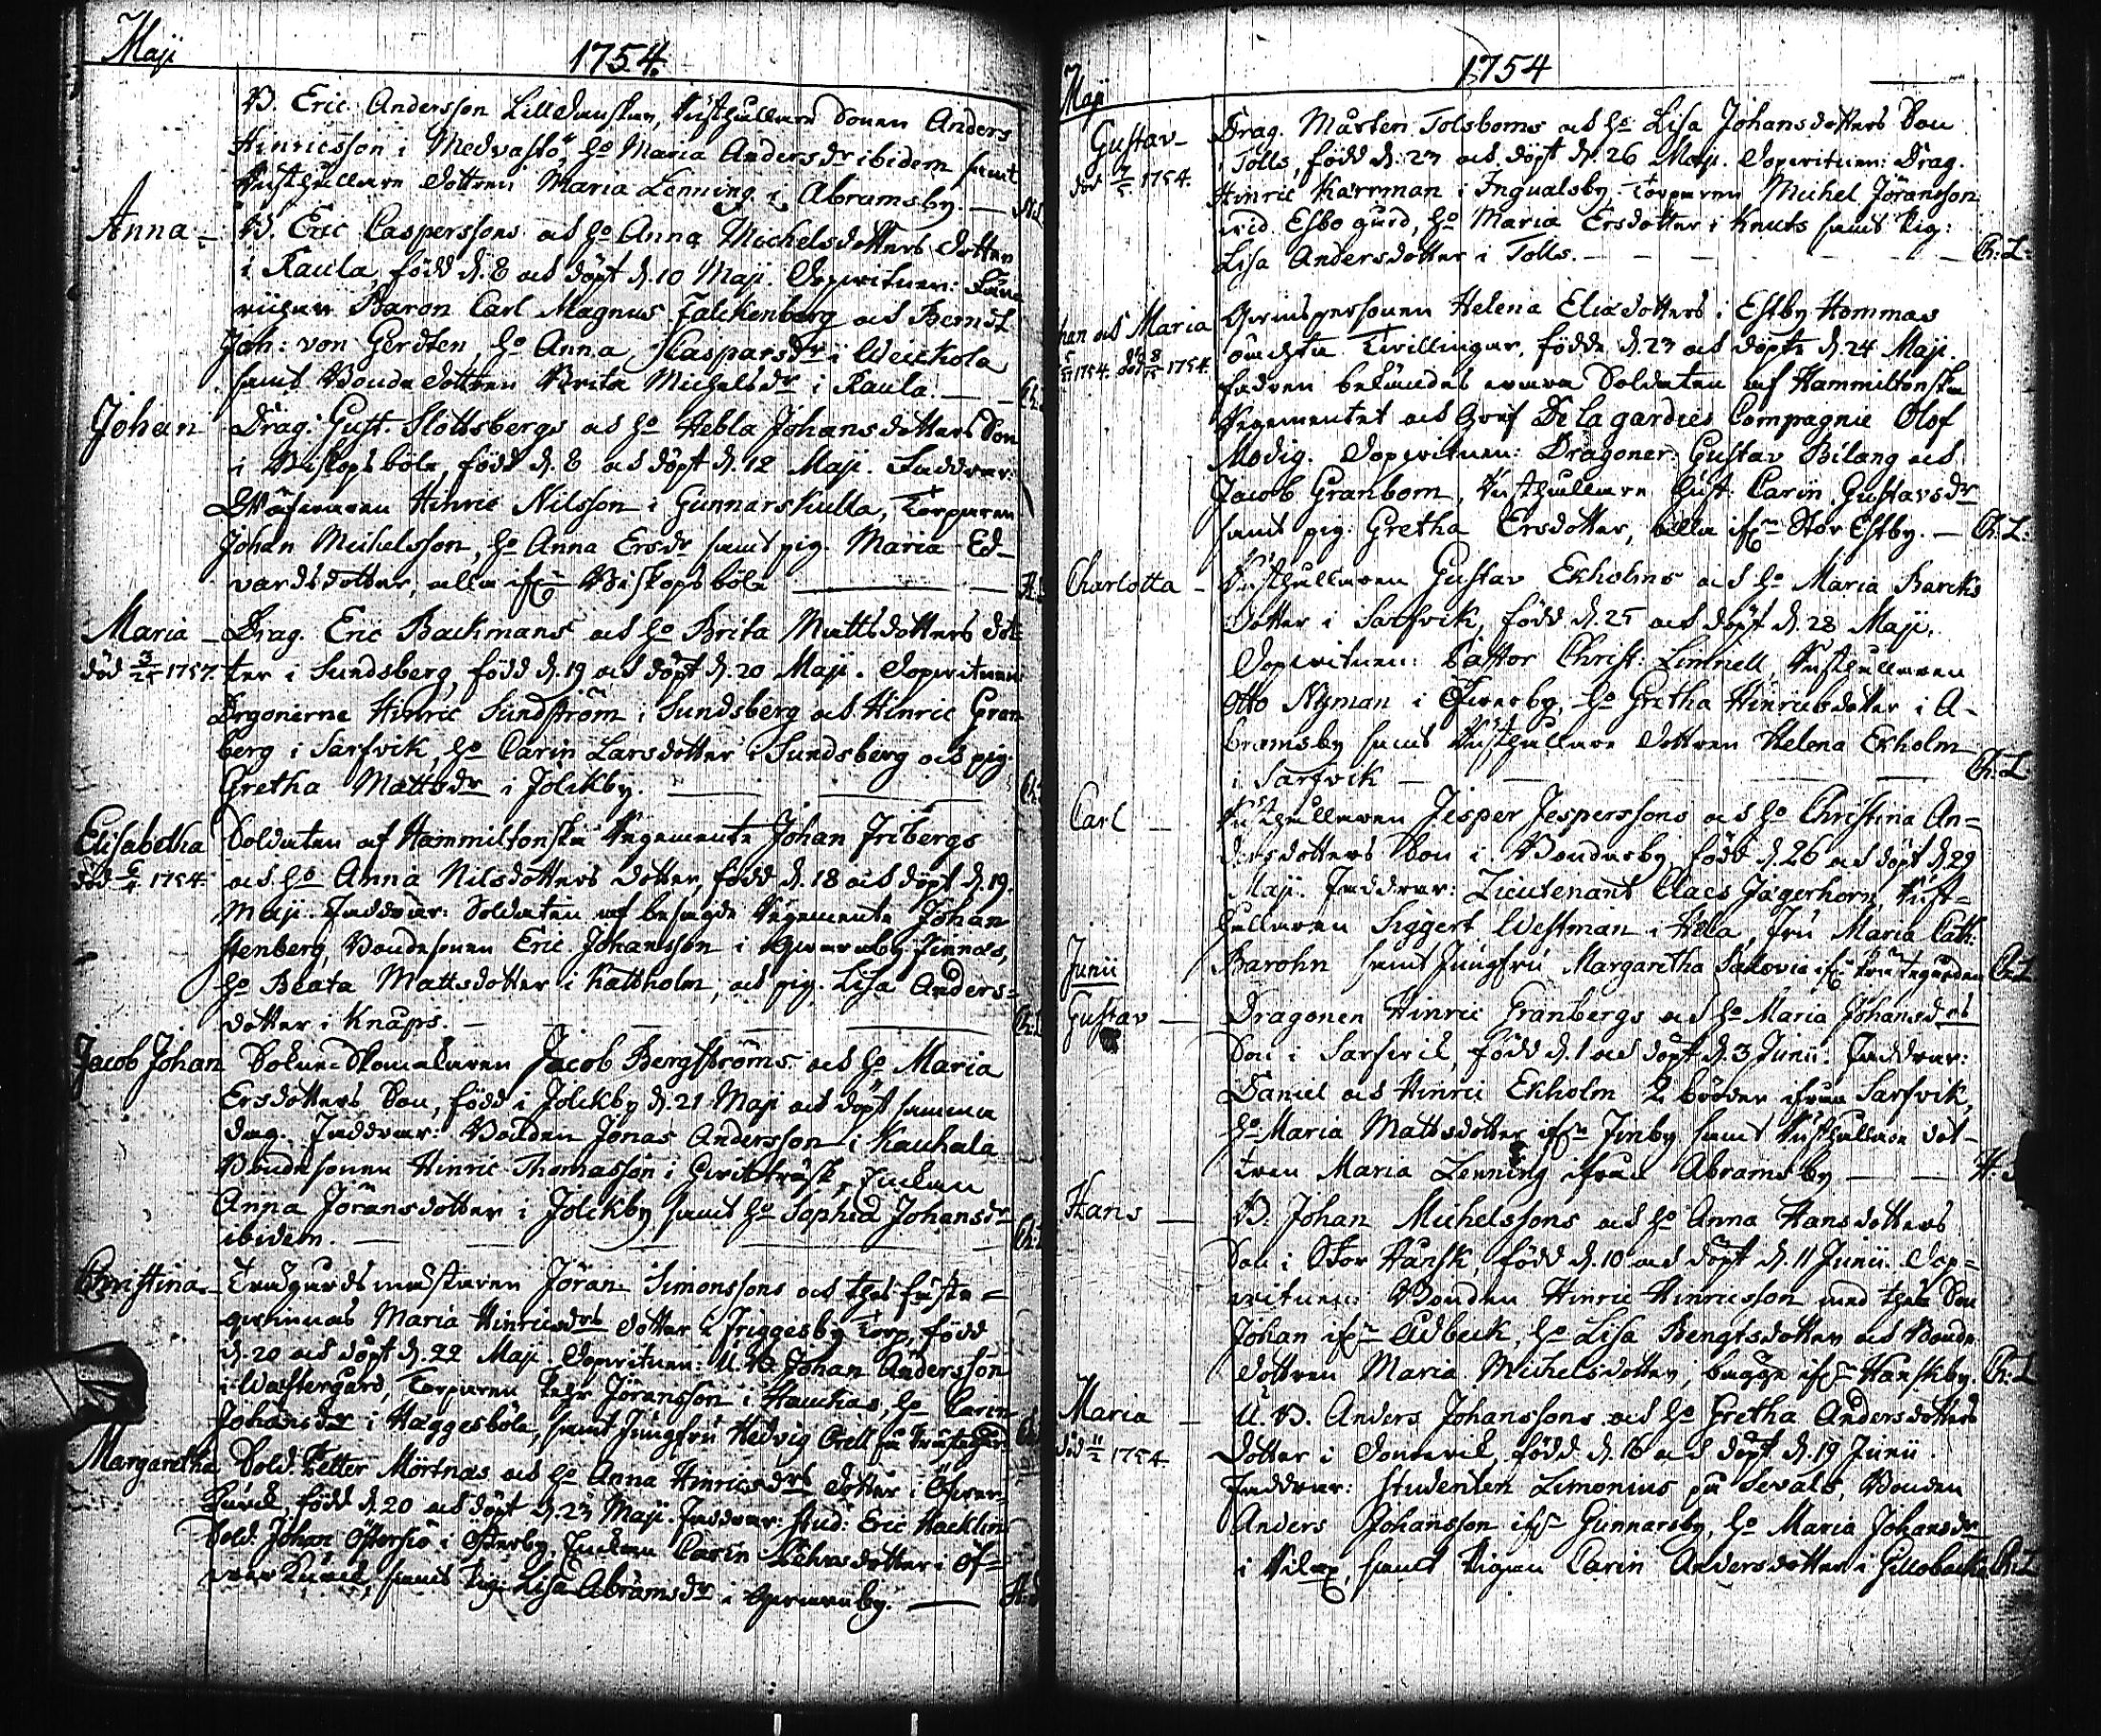 Maji
1754.
B. Eric Andersson Lilledansken, Rusthållare Sonen Anders
Hinricsson i Medvastö, H:o Maria Andersdr ibidem samt
Rusthållare dottren Maria Lenning i Abramsby. —
Anna — B. Eric Casperssons och H:o Anna Michelsdotters dotter
i Kaula, född d. 8 och döpt d. 10 Maji. Dopvitnen: Fän-
richen Baron Carl Magnus Falckenberg och Berndt
Joh: von Gerdten, H:o Anna Kasparsdr i Weickola
samt Bonde dottren Brita Michelsdr i Kaula. —
Johan Drag: Gust. Slottsbergs och H:o Hebla Johansdotters Son
i Biskopsböle, född d. 8 och döpt d. 12 Maji. Faddrar:
Hinric Nilsson i Gunnarskulla, Torparen
Johan Michelsson, H:o Anna Ersdr samt pig. Maria Ed-
vardsdotter, alla ifrn Biskopsböle —
Maria — Drag. Eric Backmans och H:o Brita Mattsdotters dot-
död 3/25 1757. ter i Sundsberg, född d. 19 och döpt d. 20 Maji. Dopvitnen:
Drgonerne Hinric Sundström i Sundsberg och Hinric Gran
berg i Sarfvik, H:o Carin Larsdotter i Sundsberg och pig.
Gretha Mattsdr i Jolckby. —
Elisabetha Soldaten af Hammiltonska Regemente Johan Fribergs
död 6/4 1754. och H:o Anna Nilsdotters dotter, född d. 18 och döpt d. 19.
Maji. Faddrar: Soldaten af besagde Regemente Johan
Stenberg, Bondesonen Eric Johansson i Qvarnby Finnas,
H:o Beata Mattsdotter i Kattholm, och pig. Lisa Anders=
dotter i Knaps. —
Jacob Johan Sokne Skomakaren Jacob Bergströms och H:o Maria
Ersdotters Son, född i Jolckby d. 21 Maji och döpt samma
dag. Faddrar: Bonden Jonas Andersson i Kauhala
Bondesonen Hinric Thomasson i Qvitträsk, Enckan
Anna Jöransdotter i Jolckby samt H:o Sophia Johansdr
ibidem. —
Christina — Trägårdsmästaren Jöran Simonssons och thes fäste=
qvinnas Maria Hinricsdrs dotter i Friggesby Torp, född
d. 20 och döpt d. 22 Maji. Dopvitnen: U. B. Johan Andersson
i Wästergård, Torparen Jöransson i Hauckas, H:o Carin
Johansdr i Häggesböle, samt Jungfru Hedvig Orell på
Margaretha Sold. Petter Mörtnäs och H:o Anna Hinricsdrs dotter i Öfver-
Kurck, född d. 20 och döpt d. 23 Maji. Faddrar: Stud: Eric Hacklin
Sold. Johan Östersiö i Österby, Enckan Carin dotter i Öf=
ver Kurck, samt Pig: Lisa Abramsdr i Qvarnby. —
Maji
1754
Gustav — Drag. Mårten Tolsboms och H:o Lisa Johansdotters Son
död 7/5 1754. i Tolls, född d. 23 och döpt d. 26 Maji. Dopvitnen: Drag.
Hinric Karrman i Ingvalsby, Torparen Michel Jöransson
vid Esbo gård, H:o Maria Ersdotter i Knuts samt Pig:
Lisa Andersdotter i Tolls. — Ch: L:
och Maria Qvinspersonen Helena Eliædotters i Estby Hommas
1754. död 8/ 1754. oächta Tvillingar, födde d. 23 och döpte d. 24 Maji.
Fadren bekändes wara Soldaten af Hammiltonska
Regementet och Gref De la gardies Compagnie Olof
Modig. Dopvitnen: Dragoner. Gustav Bilang och
Jacob Granbom, Rusthållare Hust: Carin Gustavsdr
samt pig: Gretha Ersdotter, alla ifrn Stor Estby. — Ch. L:
Charlotta — Rusthållaren Gustav Ekholms och H:o Maria Barcks
dotter i Sarfvik, född d. 25 och döpt d. 28 Maji.
Dopvitnen: Pastor Christ: Limnell, Rusthållaren
Otto Nyman i Öfverby, H:o Gretha Hinricsdotter i A-
bramsby samt Rusthållare dottren Helena Ekholm
i Sarfvik — Ch: L
Carl — Rusthållaren Jesper Jesperssons och H:o Christina An=
dersdotters Son i Bondarby, född d. 26 och döpt d. 29
Maji. Faddrar: Lieutenant Claes Jägerhorn, Rust=
hållaren Siggert Westman i Hela, Fru Maria Cath:
Barohn samt Jungfru Margaretha ifrn Prästegården Ch: L
Junii
Gustav — Dragonen Hinric Granbergs och H:o Maria Johansdrs
Son i Sarfvik, född d. 1 och döpt d. 3 Junii. Faddrar:
Daniel och Hinric Ekholm 2 bröder ifrån Sarfvik,
H:o Maria Mattsdotter ifrn Finby samt Rusthållare dot-
tren Maria Lenning ifrån Abramsby —
Hans — B. Johan Michelssons och H:o Anna Hansdotters
Son i Stor Hansk, född d. 10 och döpt d. 11 Junii. Dop=
vitnen: Bonden Hinric Hinricsson med thes Son
Johan ifrn Adbeck, H:o Lisa Bengtsdotter och Bonde
dottren Maria Michelsdotter, bägge ifrn Hanskby. Ch: L
Maria — U. B. Anders Johanssons och H:o Gretha Andersdotters
död 11/2 1754 dotter i född d. 16 och döpt d. 19 Junii.
Faddrar: Studenten Limonius på Sevals, Bonden
Anders Johansson ifrn Gunnarsby, H:o Maria Johansdr
i samt Pigan Carin Andersdotter i Gillobacka Ch: L